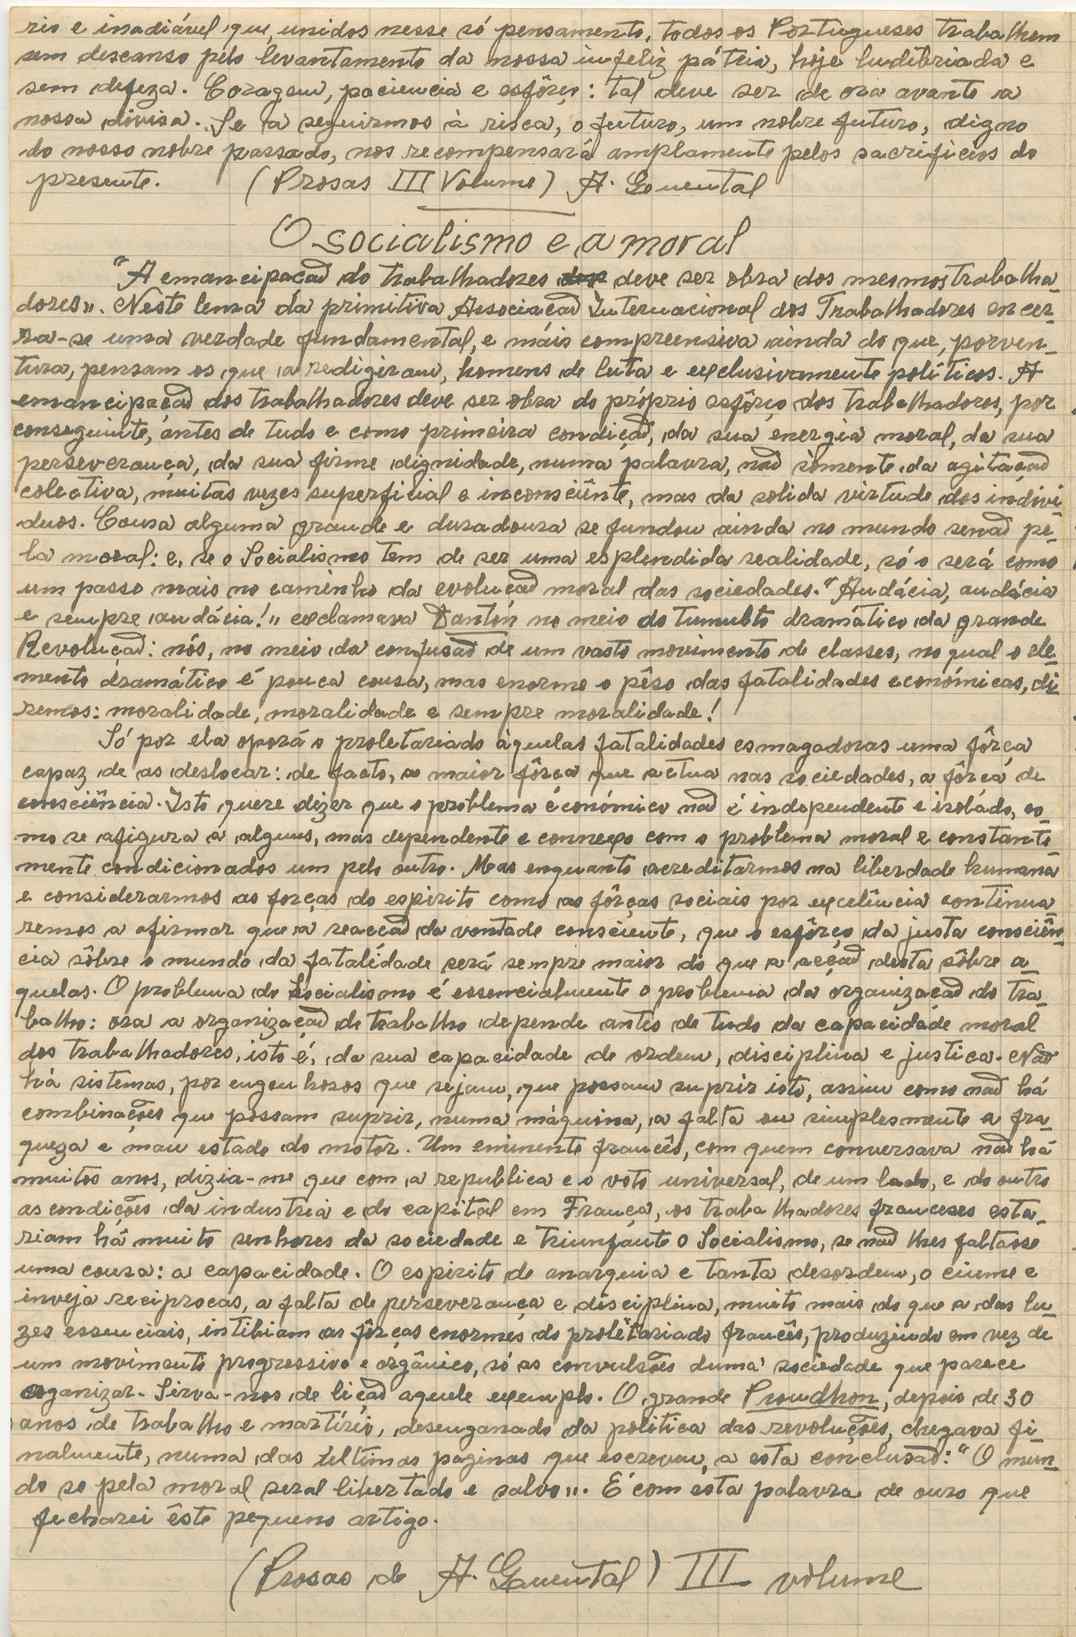 rio e inadiável que, unidos nesse só pensamento, todos os Portugueses trabalhem
sem descanso pelo levantamento da nossa infeliz pátria, hoje ludibriada e
sem defeza. Coragem, paciencia e esfôrço: tal deve ser de ora avante a
nossa divisa. Se a seguirmos à risca, o futuro, um nobre futuro, digno
do nosso nobre passado, nos recompensará amplamente pelos sacrificios do
presente. (Prosas III Volume) A. Quental
O socialismo e a moral
"A emancipação do trabalhadores deve ser obra dos mesmos trabalha-
dores". Neste lema da primitiva Associação Internacional dos Trabalhadores encer-
ra-se uma verdade fundamental, e máis compreensiva ainda do que, porven-
tura, pensam os que a redigiram, homens de luta e exclusivamente políticos. A
emancipação dos trabalhadores deve ser obra do próprio esfôrço dos trabalhadores, por
conseguinte, ántes de tudo e como primeira condição, da sua energia moral, da sua
perseverança, da sua firme dignidade, numa palavra, não sòmente da agitação
colectiva, muitas vezes superficial e inconsciênte, mas da solida virtude dos indivi-
duos. Cousa alguma grande e duradoura se fundou ainda no mundo senão pe-
la moral: e, se o Socialismo tem de ser uma esplendida realidade, só o será como
um passo mais no caminho da evolução moral das sociedades. "Audácia, audácia
e sempre audácia!" exclamava Dantón no meio do tumulto dramático da grande
Revolução: nós, no meio da confusão de um vasto movimento de classes, no qual o ele-
mento dramático é pouca cousa, mas enorme o pêso das fatalidades económicas, di-
remos: moralidade, moralidade e sempre moralidade!
Só por ela oporá o proletariado àquelas fatalidades esmagadoras uma fôrça
capaz de as deslocar: de facto, a maior fôrça que actua nas sociedades, a fôrça de
consciência. Isto quere dizer que o problema económico não é independente e isolado, co-
mo se afigura a alguns, mas dependente e connexo com o problema moral e constante
mente condicionados um pelo outro. Mas enquanto acreditarmos na liberdade humana
e considerarmos as forças do espirito como as fôrças sociais por excelência continua
remos a afirmar que a reacção da vontade consciente, que o esfôrço da justa consciên-
cia sôbre o mundo da fatalidade será sempre maior do que a acção desta sôbre a-
quelas. O problema do Socialismo é essencialmente o problema da órganização do tra-
balho: ora a organização do trabalho depende antes de tudo da capacidade moral
dos trabalhadores, isto é, da sua capacidade de ordem, disciplina e justica. Não
há sistemas, por engenhosos que sejam, que possam suprir isto, assim como não há
combinações que possam suprir, numa máquina, a falta ou simplesmente a fra-
queza e mau estado do motor. Um eminente francês, com quem conversava não há
muitos anos, dizia-me que com a republica e o voto universal, de um lado, e do outro
as condições da industria e do capital em França, os trabalhadores franceses esta-
riam há muito senhores da sociedade e triunfante o Socialismo, se não lhes faltasse
uma cousa: a capacidade. O espirito de anarquia e tanta desordem, o ciume e
inveja reciprocas, a falta de perseverança e disciplina, muito mais do que a das lu-
zes essenciais, intibiam as fôrças enormes do proletariado francês, produzindo em vez de
um movimento progressivo e orgânico, só as convulsões duma sociedade que parece
organizar. Sirva-nos de lição aquele exemplo. O grande Proudhon, depois de 30
anos de trabalho e martírio, desenganado da politica das revoluções, chegava fi-
nalmente, numa das últimas paginas que escreveu, a esta conclusão: "O mun-
do so pela moral seral libertado e salvo". É com esta palavra de ouro que
fecharei êste pequeno artigo.
(Prosas de A. Quental) III volume